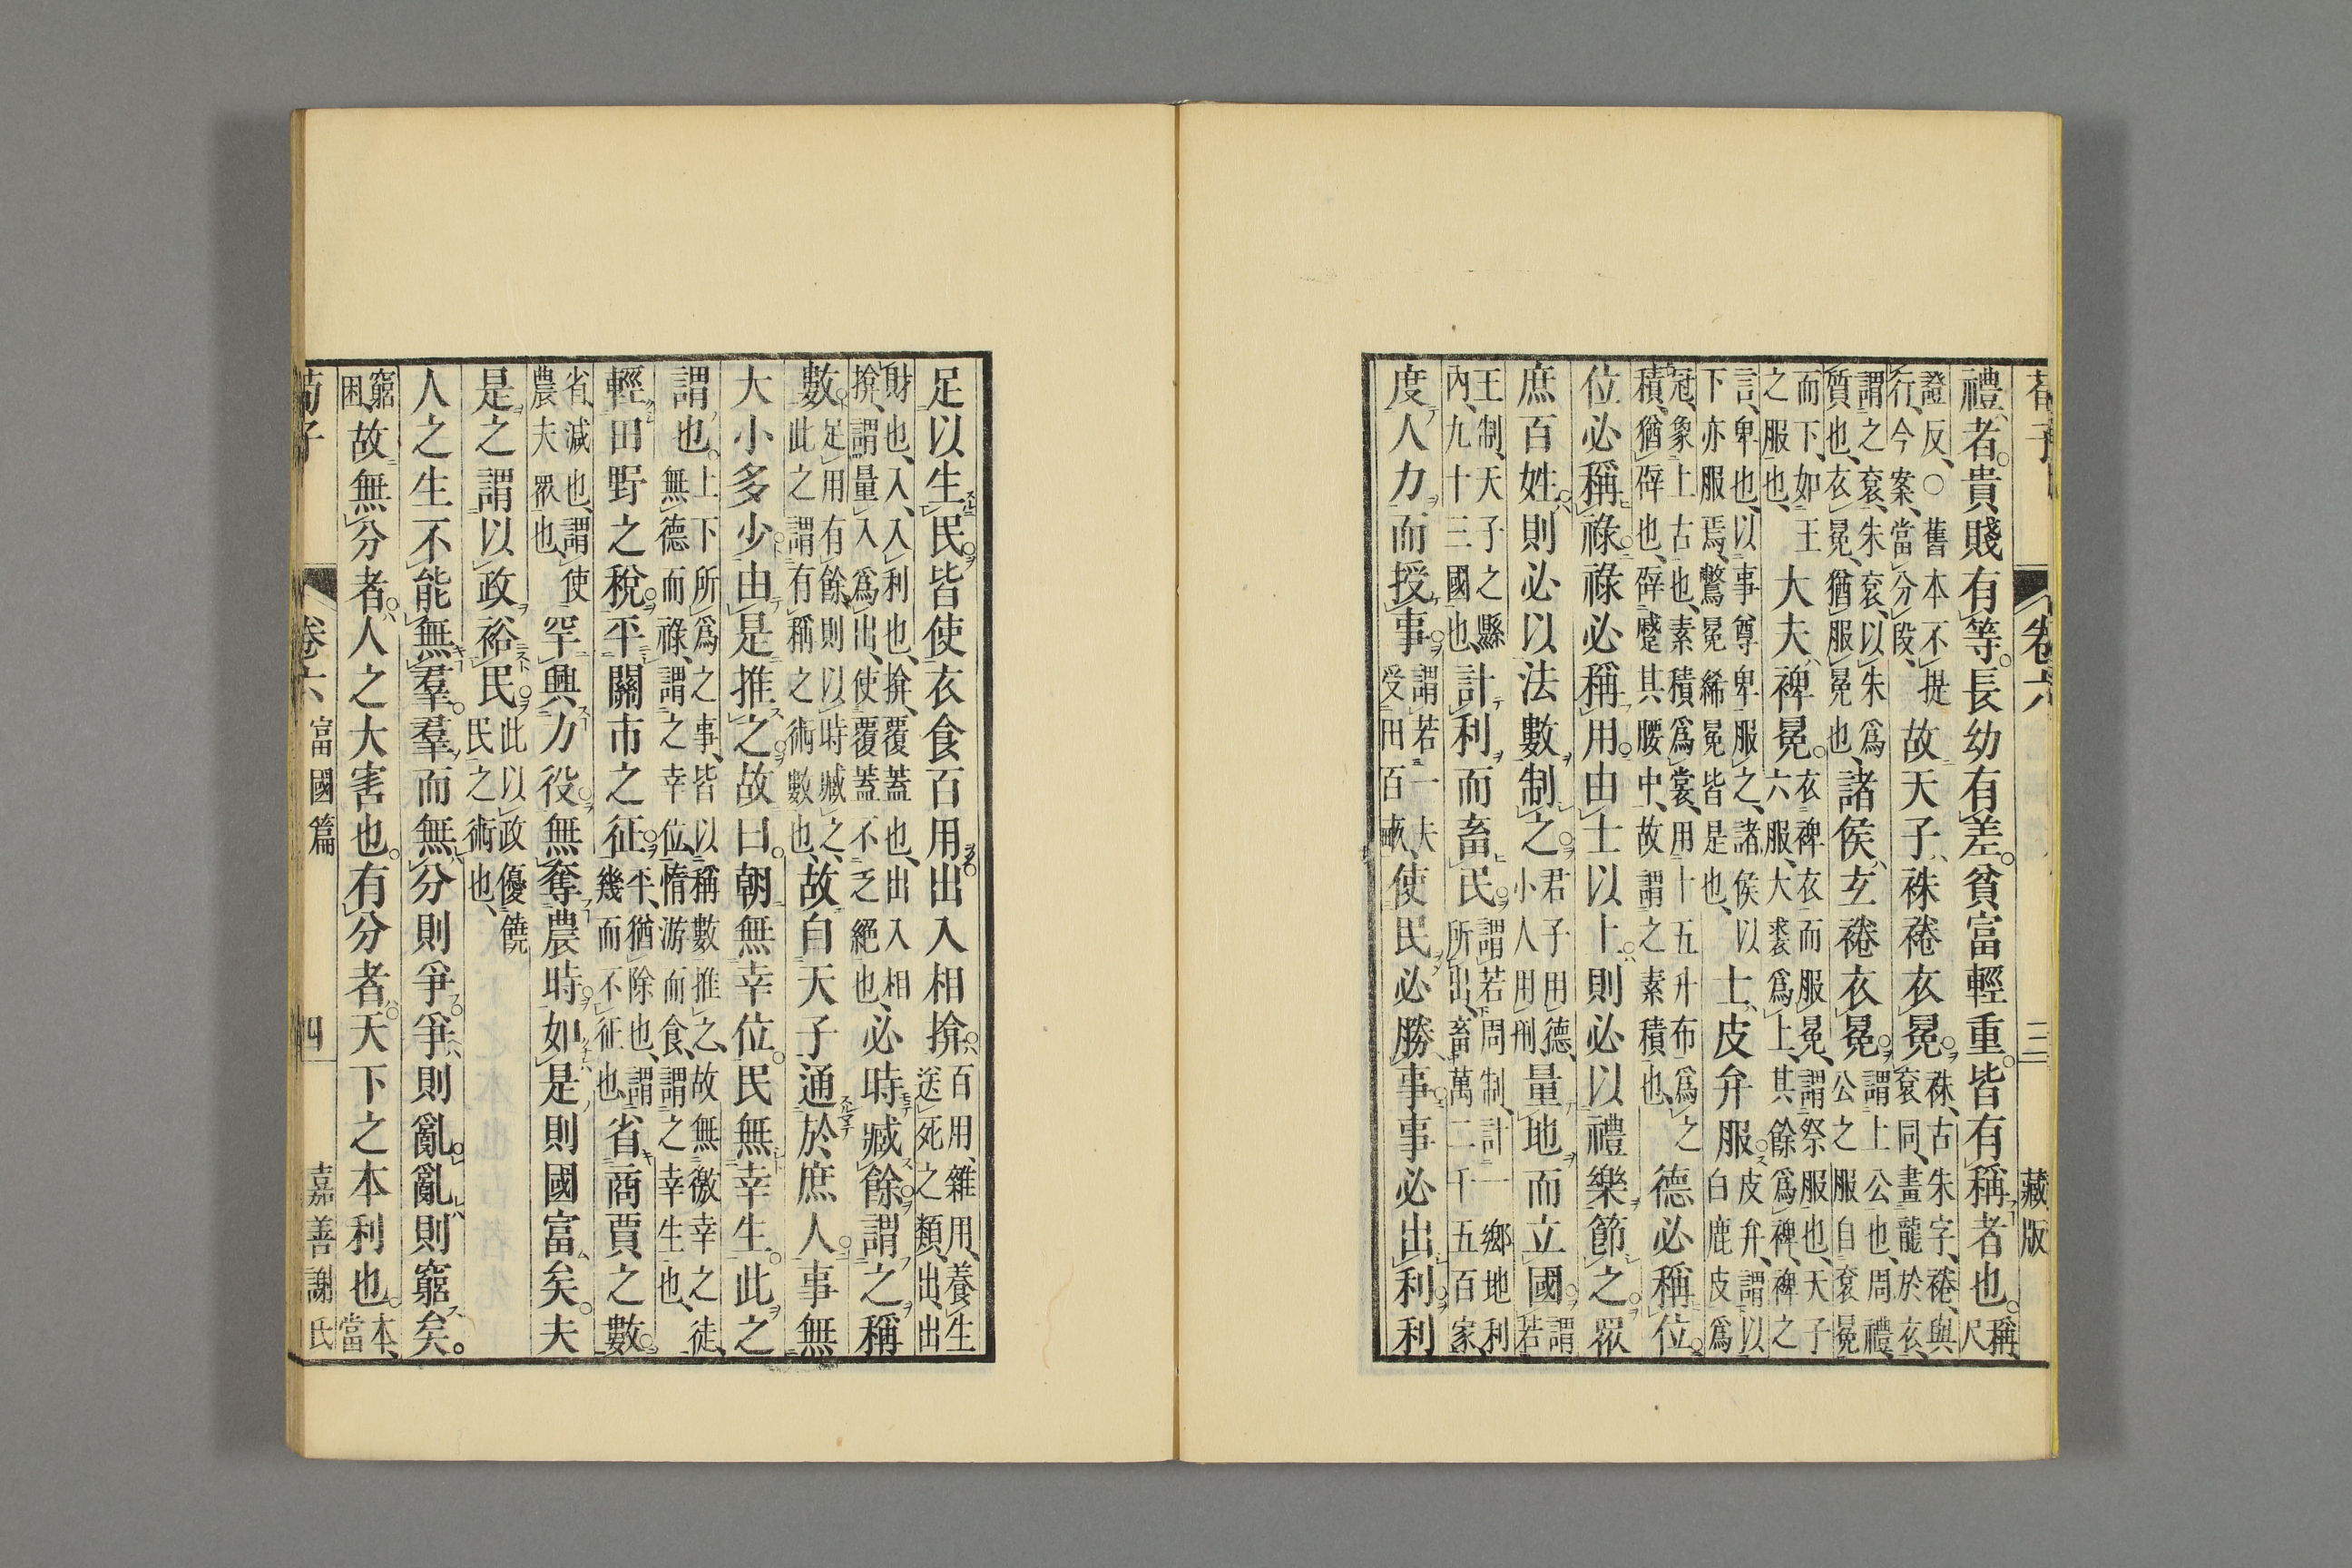 荀子 卷六 三 藏版
禮者。貴賤有等。長幼有差。貧富輕重。皆有稱者也。稱尺
證反、○舊本不提行、今案、當分段、故天子袾裷衣冕。袾、古朱字、裷、與袞同、畫龍於衣、
謂之袞、朱袞、以朱爲質也、衣冕、猶服冕也、諸侯玄裷衣冕。謂上公也、周禮、公之服自袞冕
而下、如王之服也、大夫裨冕。衣裨衣而服冕、謂祭服也、天子六服、大裘爲上、其餘爲裨、裨之
言、卑也、以事尊卑服之、諸侯以下亦服焉、鷩冕絺冕皆是也、士皮弁服。皮弁、謂以白鹿皮爲
冠、象上古也、素積爲裳、用十五升布爲之積、猶辟也、辟蹙其腰中、故謂之素積也、德必稱位。
位必稱祿。祿必稱用。由士以上。則必以禮樂節之。眾
庶百姓。則必以法數制之。君子用德、小人用刑、量地而立國。謂若
王制、天子之縣內、九十三國也、計利而畜民。謂若周制、計一鄉地利所出、畜萬二千五百家、
度人力而授事。謂若一夫受田百畝、使民必勝事。事必出利。利
足以生民。皆使衣食百用。出入相揜。百用、雜用、養生送死之類、出、出
財也、入、入利也、揜、覆蓋也、出入相揜、謂量入爲出、使覆蓋不乏絕也、必時臧餘。謂之稱
數。足用有餘、則以時臧之、此之謂有稱之術數也、故自天子通於庶人。事無
大小多少。由是推之。故曰。朝無幸位。民無幸生。此之
謂也。上下所爲之事、皆以稱數推之、故無徼幸之徒、無德而祿、謂之幸位、惰游而食、謂之幸生也、
輕田野之稅。平關市之征。平、猶除也、謂幾而不征也、省商賈之數。
省、減也、謂使農夫眾也、罕興力役。無奪農時。如是則國富矣。夫
是之謂以政裕民。此以政優饒民之術也、
人之生不能無羣。羣而無分則爭。爭則亂。亂則窮矣。
窮困、故無分者。人之大害也。有分者。天下之本利也。本、當
荀子 卷六 富國篇 四 嘉善謝氏